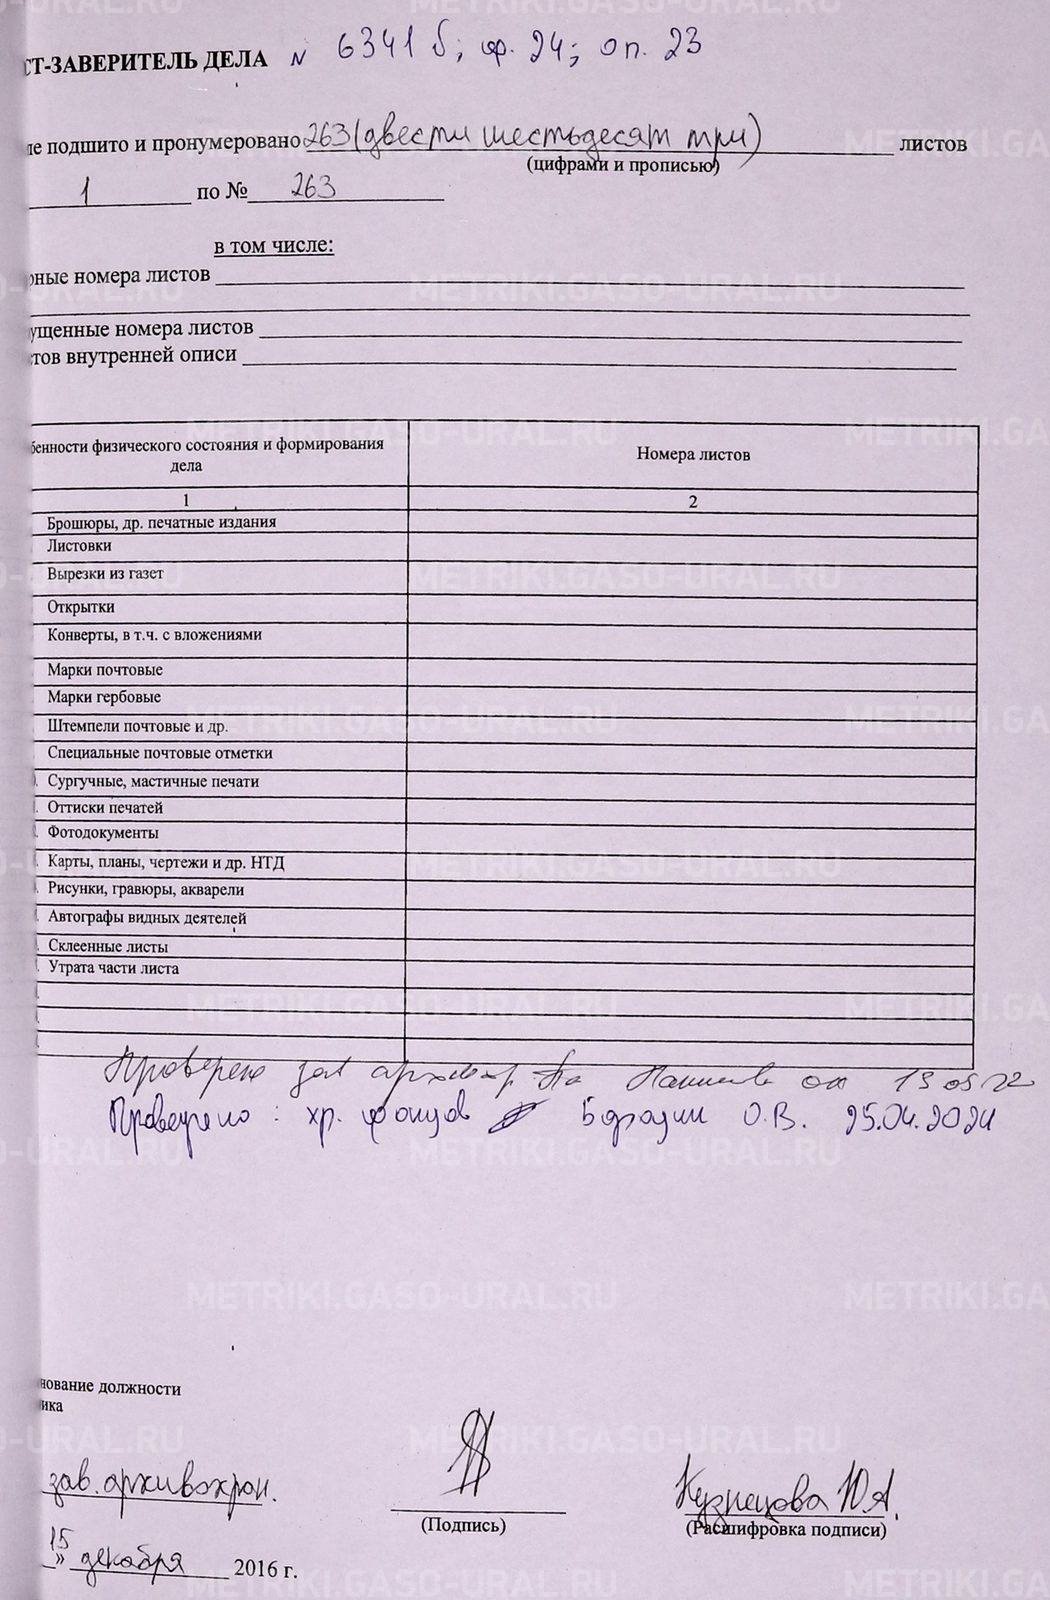 СТ-ЗАВЕРИТЕЛЬ ДЕЛА № 6341 б; ф. 24; оп. 23
ле подшито и пронумеровано 263 (двести шестьдесят три) листов
(цифрами и прописью)
1 по № 263
в том числе:
рные номера листов
ущенные номера листов
стов внутренней описи
бенности физического состояния и формирования дела Номера листов
1 2
Брошюры, др. печатные издания
Листовки
Вырезки из газет
Открытки
Конверты, в т.ч. с вложениями
Марки почтовые
Марки гербовые
Штемпели почтовые и др.
Специальные почтовые отметки
Сургучные, мастичные печати
Оттиски печатей
Фотодокументы
Карты, планы, чертежи и др. НТД
Рисунки, гравюры, акварели
Автографы видных деятелей
Склеенные листы
Утрата части листа
Проверено зав архивохр
Проверено: хр. фондов О.В. 25.04.2024
нование должности
ика
зав. архивохран.
(Подпись)
Кузнецова Ю.А.
(Расшифровка подписи)
15 » декабря 2016 г.
METRIKI.GASO-URAL.RU